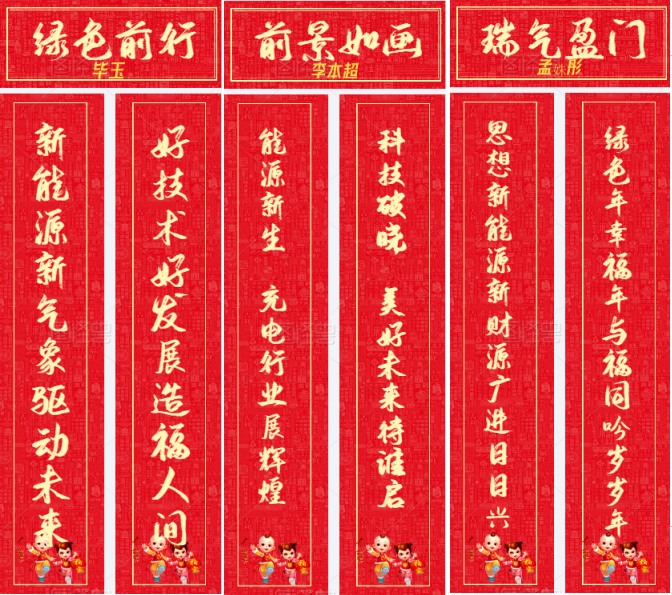 绿色前行
毕玉
前景如画
李本超
瑞气盈门
孟姝彤
新能源新气象驱动未来
好技术好发展造福人间
能源新生 充电行业展辉煌
科技破晓 美好未来待谁启
思想新能源新财源广进日日兴
绿色年幸福年与福同吟岁岁年